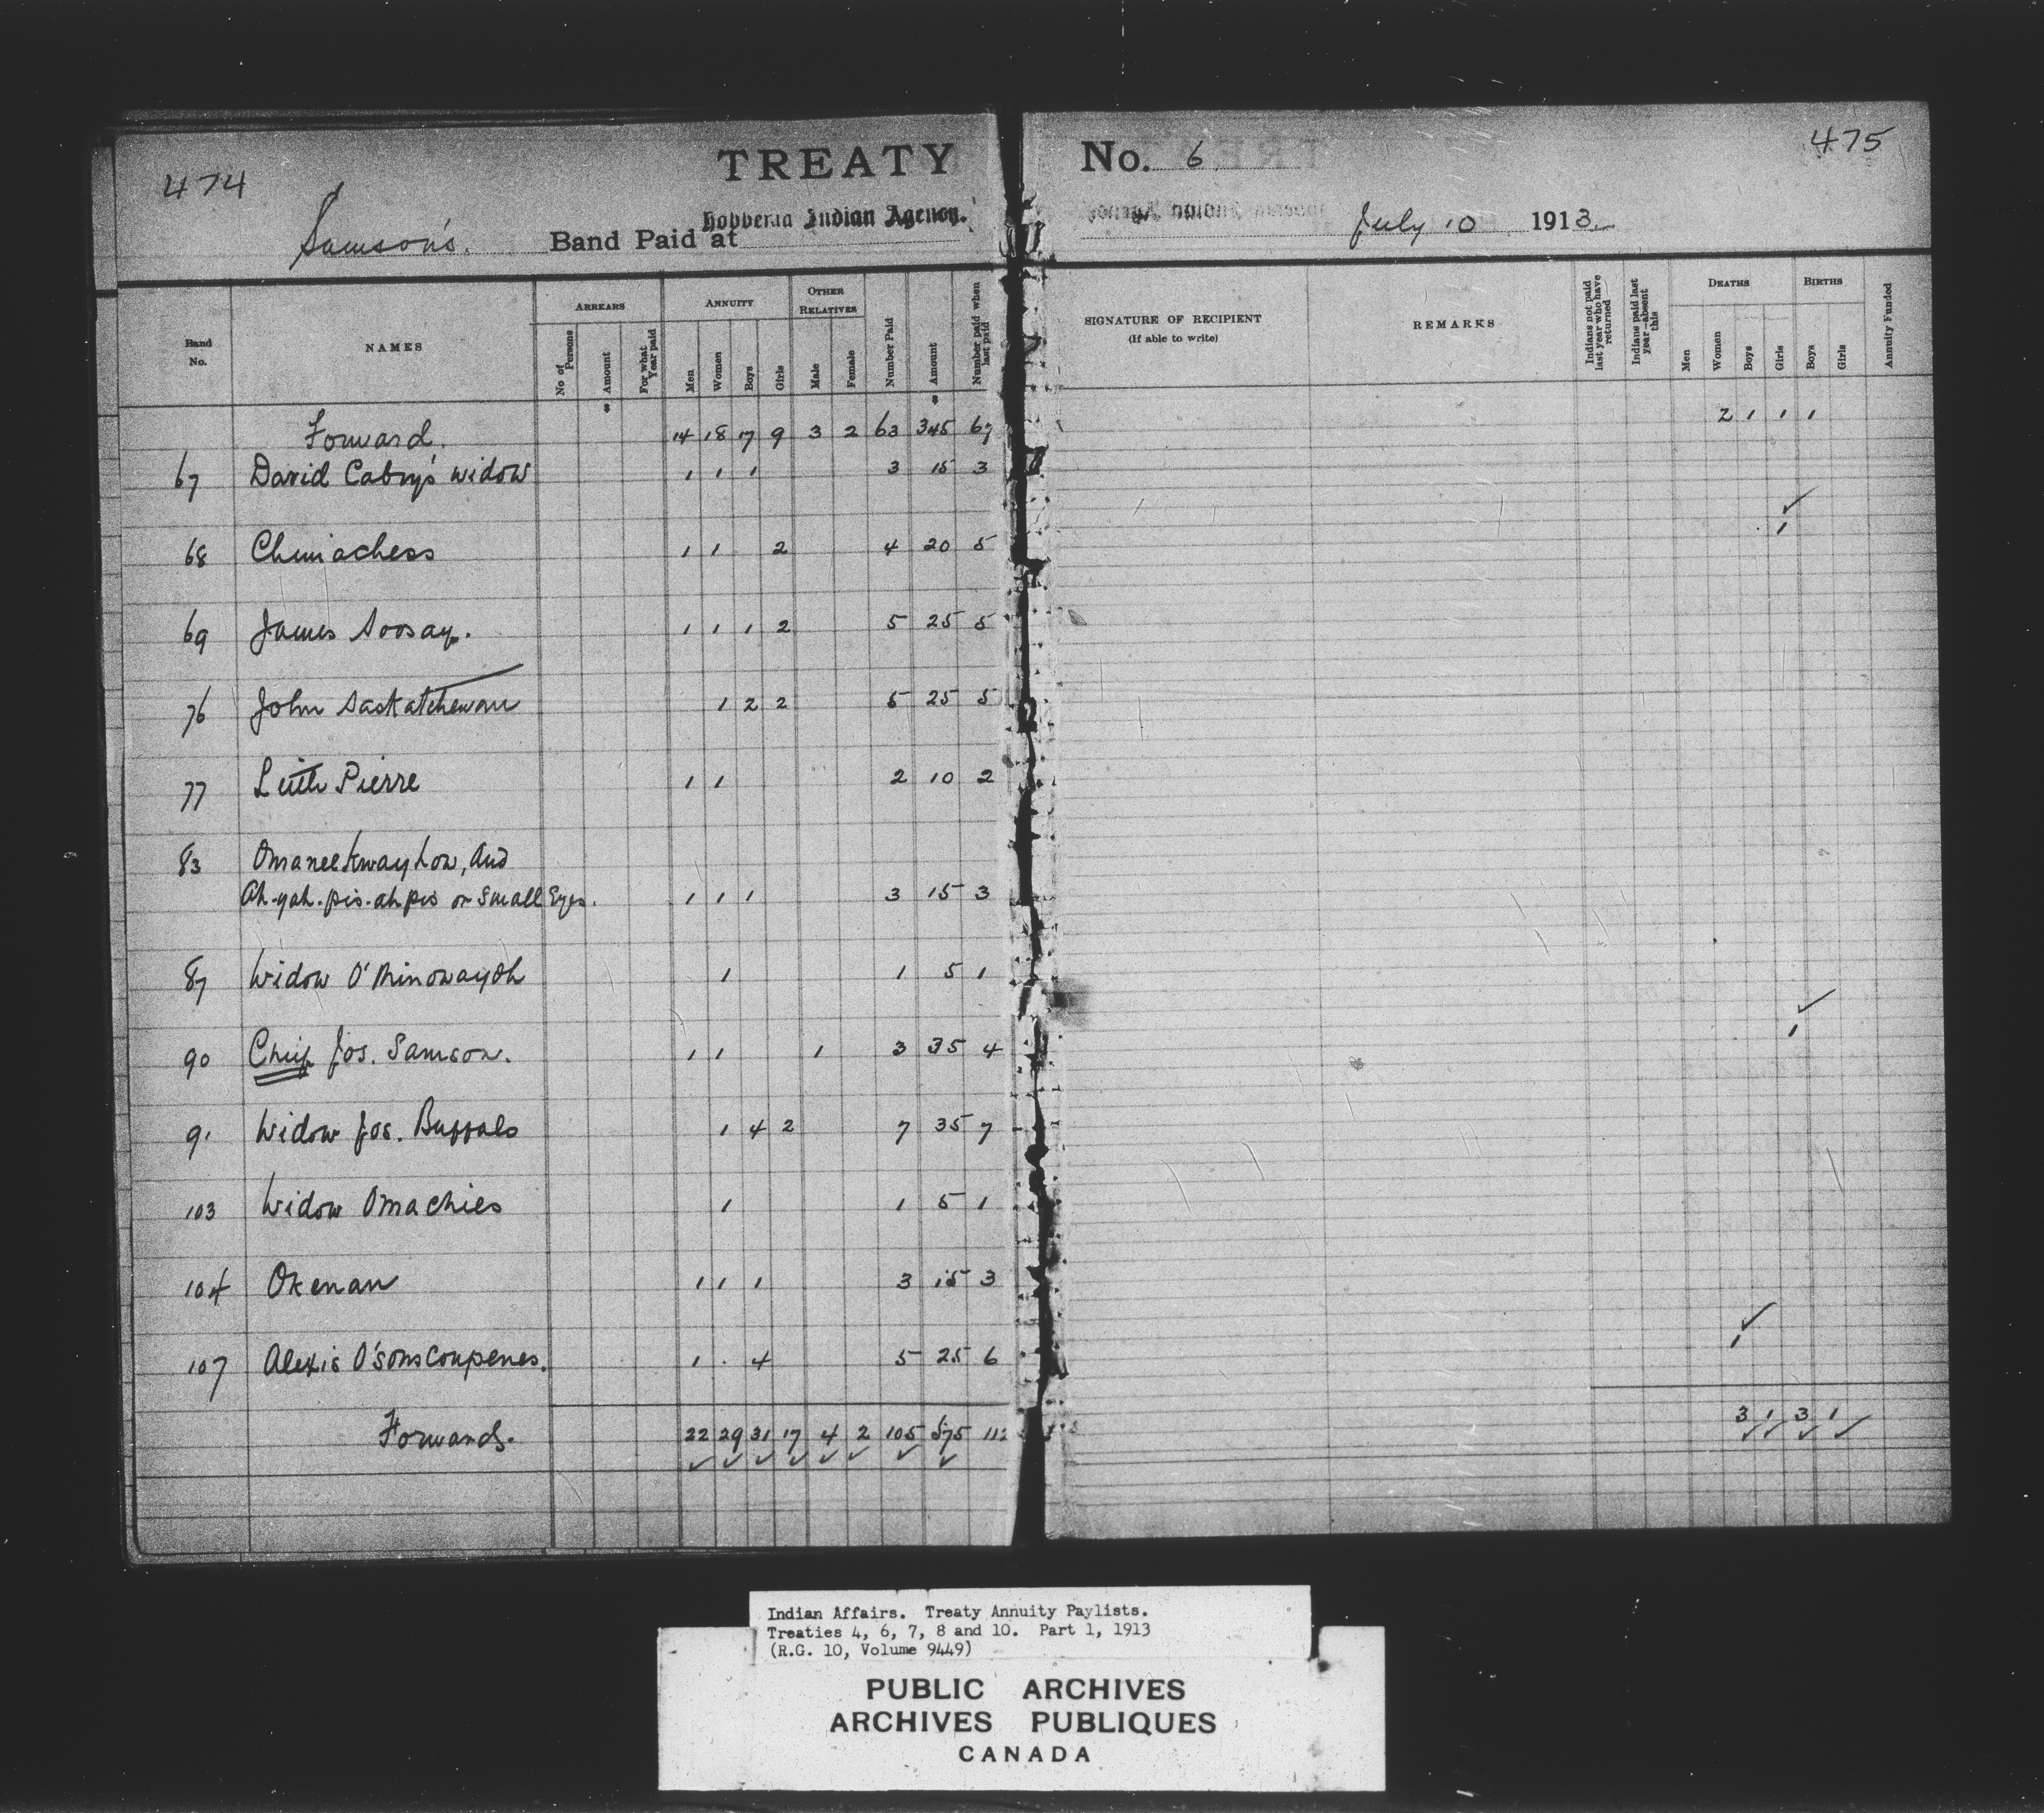 474
TREATY No. 6
475
Hobbema Indian Agency.
Samson's. Band Paid at July 10 1913
Band No.
NAMES
ARREARS
No of Persons
Amount
For what Year paid
ANNUITY
Men
Women
Boys
Girls
OTHER RELATIVES
Male
Female
Number Paid
Amount
Number paid when last paid
SIGNATURE OF RECIPIENT
(If able to write)
REMARKS
Indians not paid last year who have returned
Indians paid last year—absent this
DEATHS
Men
Women
Boys
Girls
BIRTHS
Boys
Girls
Annuity Funded
Forward. 14 18 17 9 3 2 63 345 67 2 1 1 1
67 David Cabry's widow 1 1 1 3 15 3
68 Chuiachess 1 1 2 4 20 5 1
69 James Soosay. 1 1 1 2 5 25 5
76 John Saskatchewan 1 2 2 5 25 5
77 Little Pierre 1 1 2 10 2
83 Omaneekwayhow, and
Ah-yah-pis-ah-pis or Small Eyes. 1 1 1 3 15 3
87 Widow O'Minowayoh 1 1 5 1
90 Chief Jos. Samson. 1 1 1 3 35 4 1
91 Widow Jos. Buffalo 1 4 2 7 35 7
103 Widow Omachies 1 1 5 1
104 Okenan 1 1 1 3 15 3
107 Alexis O'somscoupenes. 1 . 4 5 25 6 1
Forwards. 22 29 31 17 4 2 105 575 112 3 1 3 1
Indian Affairs. Treaty Annuity Paylists.
Treaties 4, 6, 7, 8 and 10. Part 1, 1913
(R.G. 10, Volume 9449)
PUBLIC ARCHIVES
ARCHIVES PUBLIQUES
CANADA